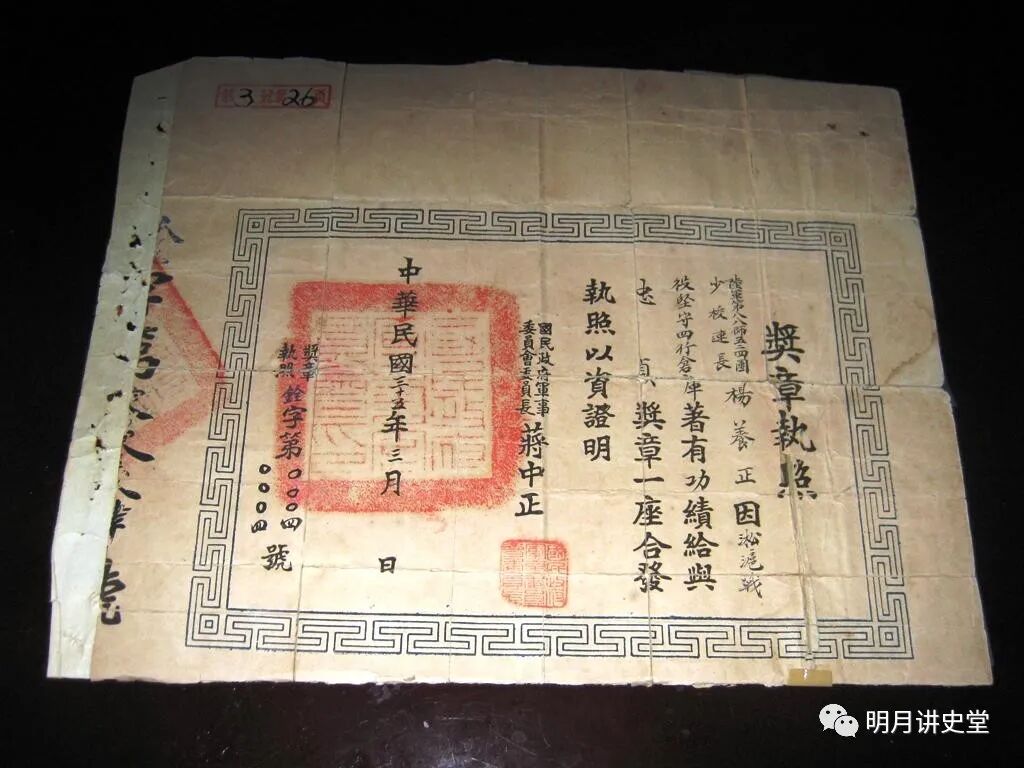 第3號第26頁
獎章執照
陸軍第八八師五二四團
少校連長 楊養正因淞滬戰
役堅守四行倉庫著有功績給與
忠貞獎章一座合發
執照以資證明
國民政府軍事
委員會委員長 蔣中正
中華民國三十五年三月 日
獎章
執照 銓字第〇〇〇四
〇〇〇四 號
明月讲史堂